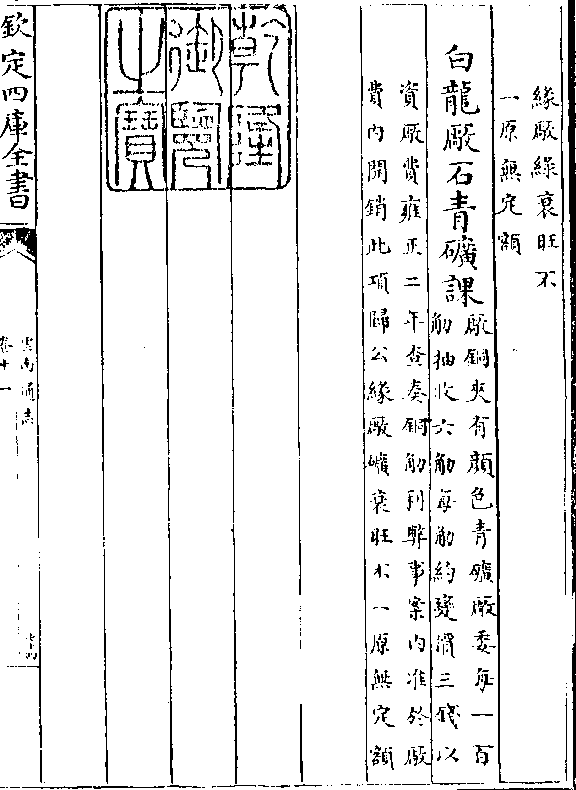 緣厰綠衰旺不
一原無定額
白龍厰石青礦課
厰銅夾有顔色青礦厰委每一百
觔抽收六觔每觔約變價三錢以
資厰費雍正二年查奏銅觔利弊事案内准於厰
費内開銷此項歸公緣厰礦衰旺不一原無定額
乾隆
御覽
之寶
欽定四庫全書
雲南通志
卷十一